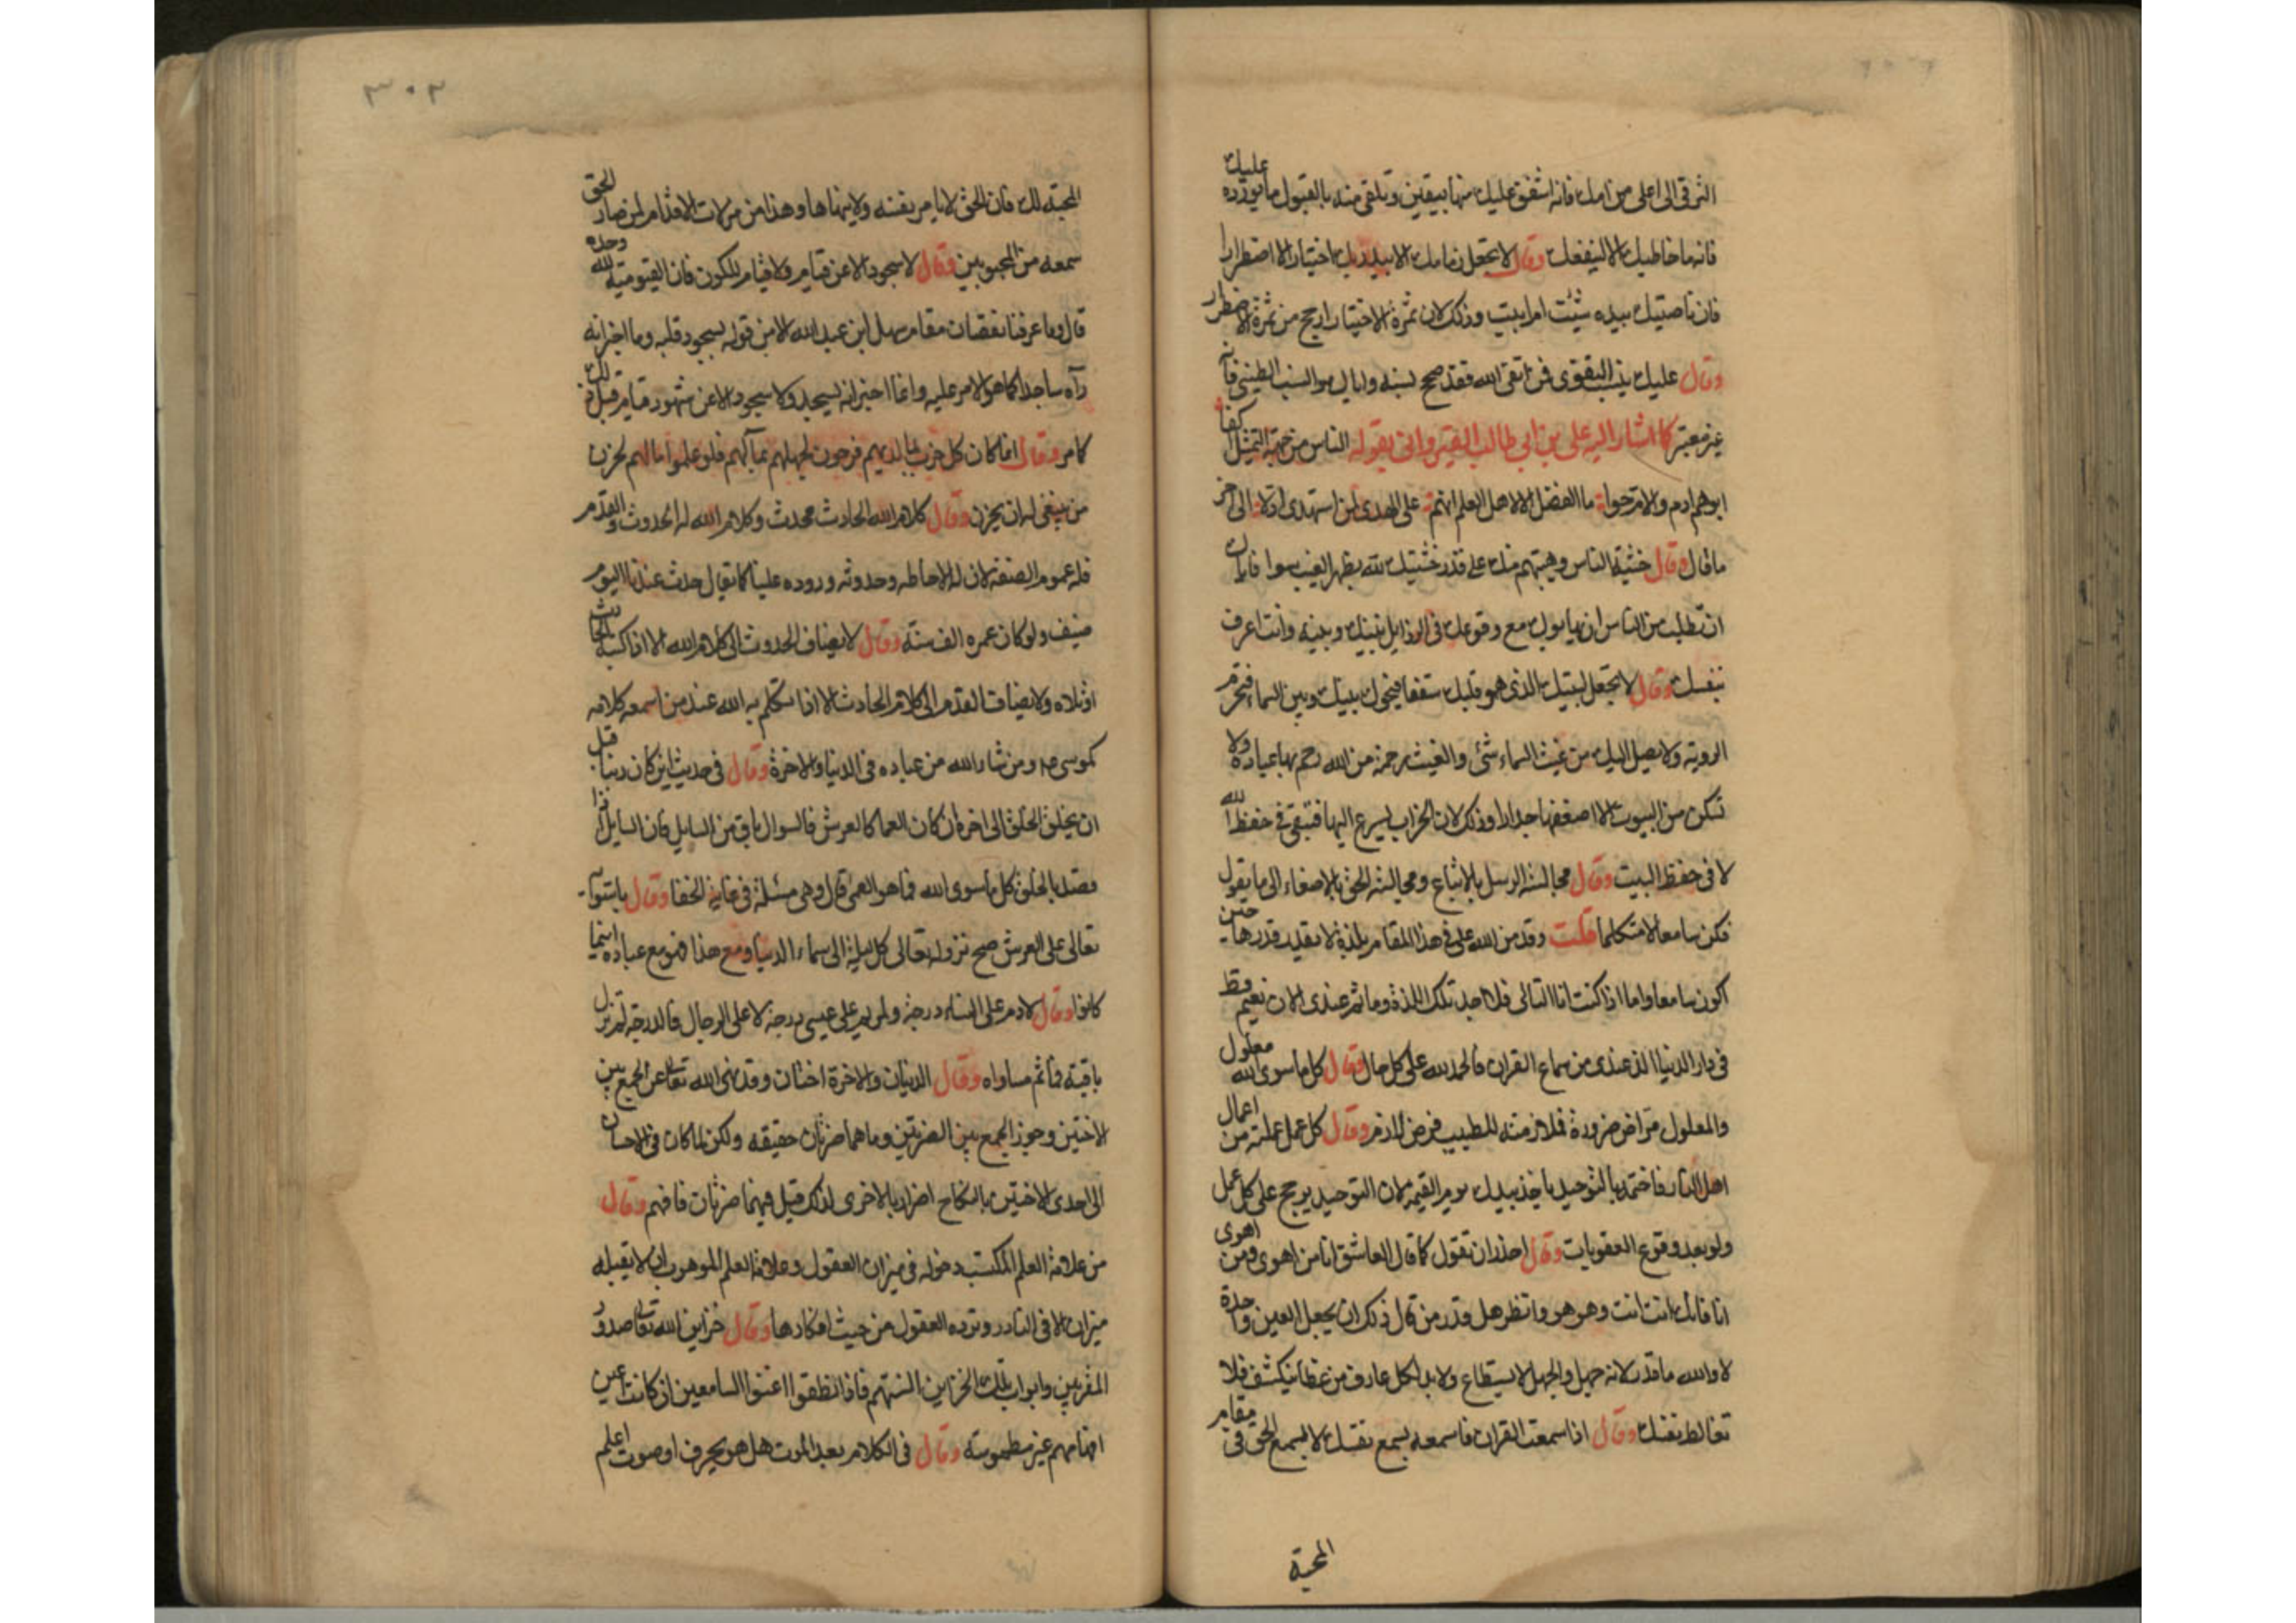 الترقى الى اعلى من امل فانه اشفق عليك منها بيقين وتلقى منه بالقبول ما يورده عليك
فانه ما خاطبك الا لينفعك وقال لا تجعل زمامك الا بيد ربك اختيارا لا اضطرارا
فان ناصيتك بيده شئت ام ابيت وذلك لان ثمرة الاختيار ارجح من ثمرة الاضطرار
وقال عليك بنسب التقوى فمن اتقى الله فقد صح نسبه واياك والنسب الطينى فانه
غير معتبر كما اشار اليه على بن ابى طالب القيروانى بقوله الناس من جهة التمثيل اكفا
ابوهم ادم والام حوا ما الفضل الا لاهل العلم انهم على الهدى لمن استهدى ادلا الى اخر
ما قال وقال خشية الناس وهيبتهم منك على قدر خشيتك لله بظهر الغيب سوا فاياك
ان تطلب من الناس ان يهابوك مع وقوعك فى الرذايل بينك وبينه وانت اعرف
بنفسك وقال لا تجعل لبيتك الذى هو قلبك سقفا فيحول بينك وبين السماء فتحرم
الروية ولا يصل اليك من غيث السماء شئ والغيث رحمة من الله رحم بها عباده ولا
تسكن من البيوت الا اضعفها جدارا وذلك لان الخراب يسرع اليها فتبقى فى حفظ الله
لا فى حفظ البيت وقال مجالسة الرسل بالاتباع ومجالسة الحق بالاصغاء الى ما يقول
فكن سامعا لا متكلما قلت وقد من الله على فى هذا المقام بلذة لا يقدر قدرها حين
اكون سامعا واما اذا كنت انا التالى فلا اجد تلك اللذة وما ثم عندى الان نعيم قط
فى دار الدنيا الذ عندى من سماع القران فالحمد لله على كل حال وقال كل ما سوى الله معلول
والمعلول مرا ض ضرورة فملازمته للطبيب فرض لازم وقال كل عمل عملته من اعمال
اهل النار فاختمه بالتوحيد ياخذ بيدك يوم القيمة لان التوحيد يرجح على كل عمل
ولو بعد وقوع العقوبات وقال احذر ان تقول كما قال العاشق انا من اهوى ومن اهوى
انا فانك انت انت وهو هو وانظر هل قدر من قال ذلك ان يجعل العين واحدة
لا والله ما قدر لانه جهل والجهل لا يستطاع ولا بد لكل عارف من غطا ينكشف فلا
تغالط نفسك وقال اذا سمعت القران فاسمعه بسمع نفسك لا بسمع الحق فى مقام
المحبة
٣٠٣
المحبة لك فان الحق لا يامر نفسه ولا ينهاها وهذا من مزلات الاقدام لمن صار الحق
سمعه من المحبوبين وقال لا سجود الا عن قيام ولا قيام للكون فان القيومية لله وحده
قال وما عرفنا نقصان مقام سهل ابن عبد الله الا من قوله بسجود قلبه وما اخبر انه
رآه ساجدا كما هو الامر عليه وانما اخبر انه يسجد ولا سجود الا عن شهود قيام قبل ذلك
كما مر وقال انما كان كل حزب بما لديهم فرحون لجهلهم بمآلهم فلو علموا مالهم لحزن
من ينبغى له ان يحزن وقال كلام الله الحادث محدث وكلام الله له الحدوث والقدم
فله عموم الصفة لان له الاحاطه وحدوثه وروده علينا كما تقال حدث عندنا اليوم
ضيف ولو كان عمره الف سنة وقال لا يضاف الحدوث الى كلام الله الا اذا كتبه الحادث
او تلاه ولا يضاف القدم الى كلام الحادث الا اذا تكلم به الله عند من اسمعه كلامه
كموسى ومن شاء الله من عباده فى الدنيا والاخرة وقال فى حديث اين كان ربنا قبل
ان يخلق الخلق الى اخره ان كان العما كالعرش فالسوال باق من السايل فان السايل انما
قصد بالخلق كل ما سوى الله فما هو العمى قال وهى مسئلة فى غاية الخفا وقال باستوائه
تعالى على العرش صح نزوله تعالى كل ليلة الى سماء الدنيا ومع هذا فهو مع عباده اينما
كانوا وقال لادم على النساء درجة ولمريم على عيسى درجة لا على الرجال فالدرجة لم تزل
باقية فما ثم مساواه وقال الدنيا والاخرة اختان وقد نهى الله تعالى عن الجمع بين
الاختين وجوز الجمع بين الضرتين وما هما ضرتان حقيقه ولكن لما كان فى الاحسان
الى احدى الاختين بالنكاح اضرار بالاخرى لذلك قيل فيهما ضرتان فافهم وقال
من علامة العلم المكتسب دخوله فى ميزان العقول وعلامة العلم الموهوب ان لا يقبله
ميزان الا فى النادر وترده العقول من حيث افكارها وقال خزاين الله تعالى صدور
المقربين وابواب تلك الخزاين السنتهم فاذا نطقوا اغنوا السامعين ان كانت عين
افهامهم غير مطموسة وقال فى الكلام بعد الموت هل هو بحرف او صوت اعلم